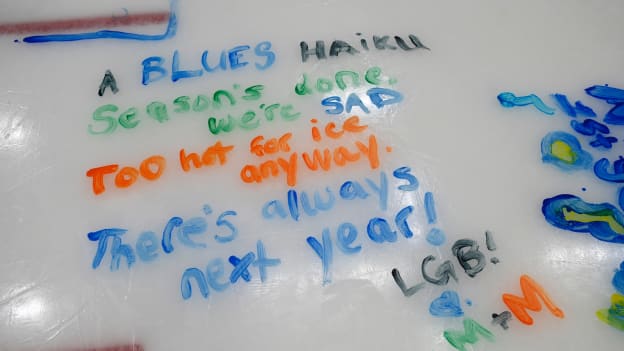 A BLUES HAIKU
Season's done.
we're SAD
Too hot for ice
anyway.
There's always
next year!
LGB!
M + M